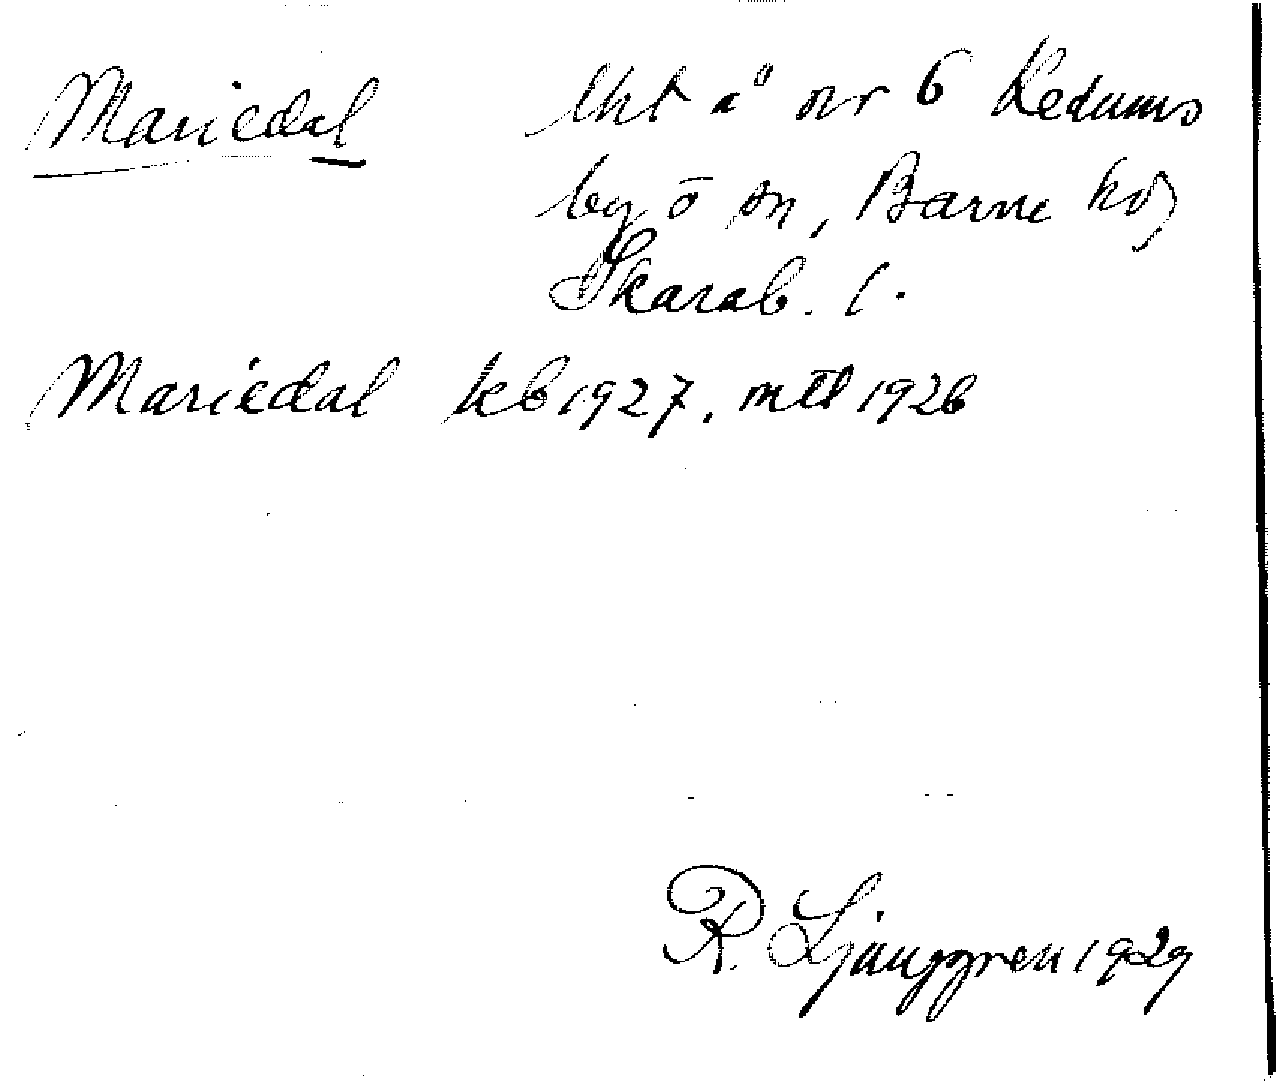 Mariedal lht å nr 6 Kedums
by o sn, Barne hd,
Skarab. l.
Mariedal kb 1927, mtl 1926
R. Ljunggren 1929